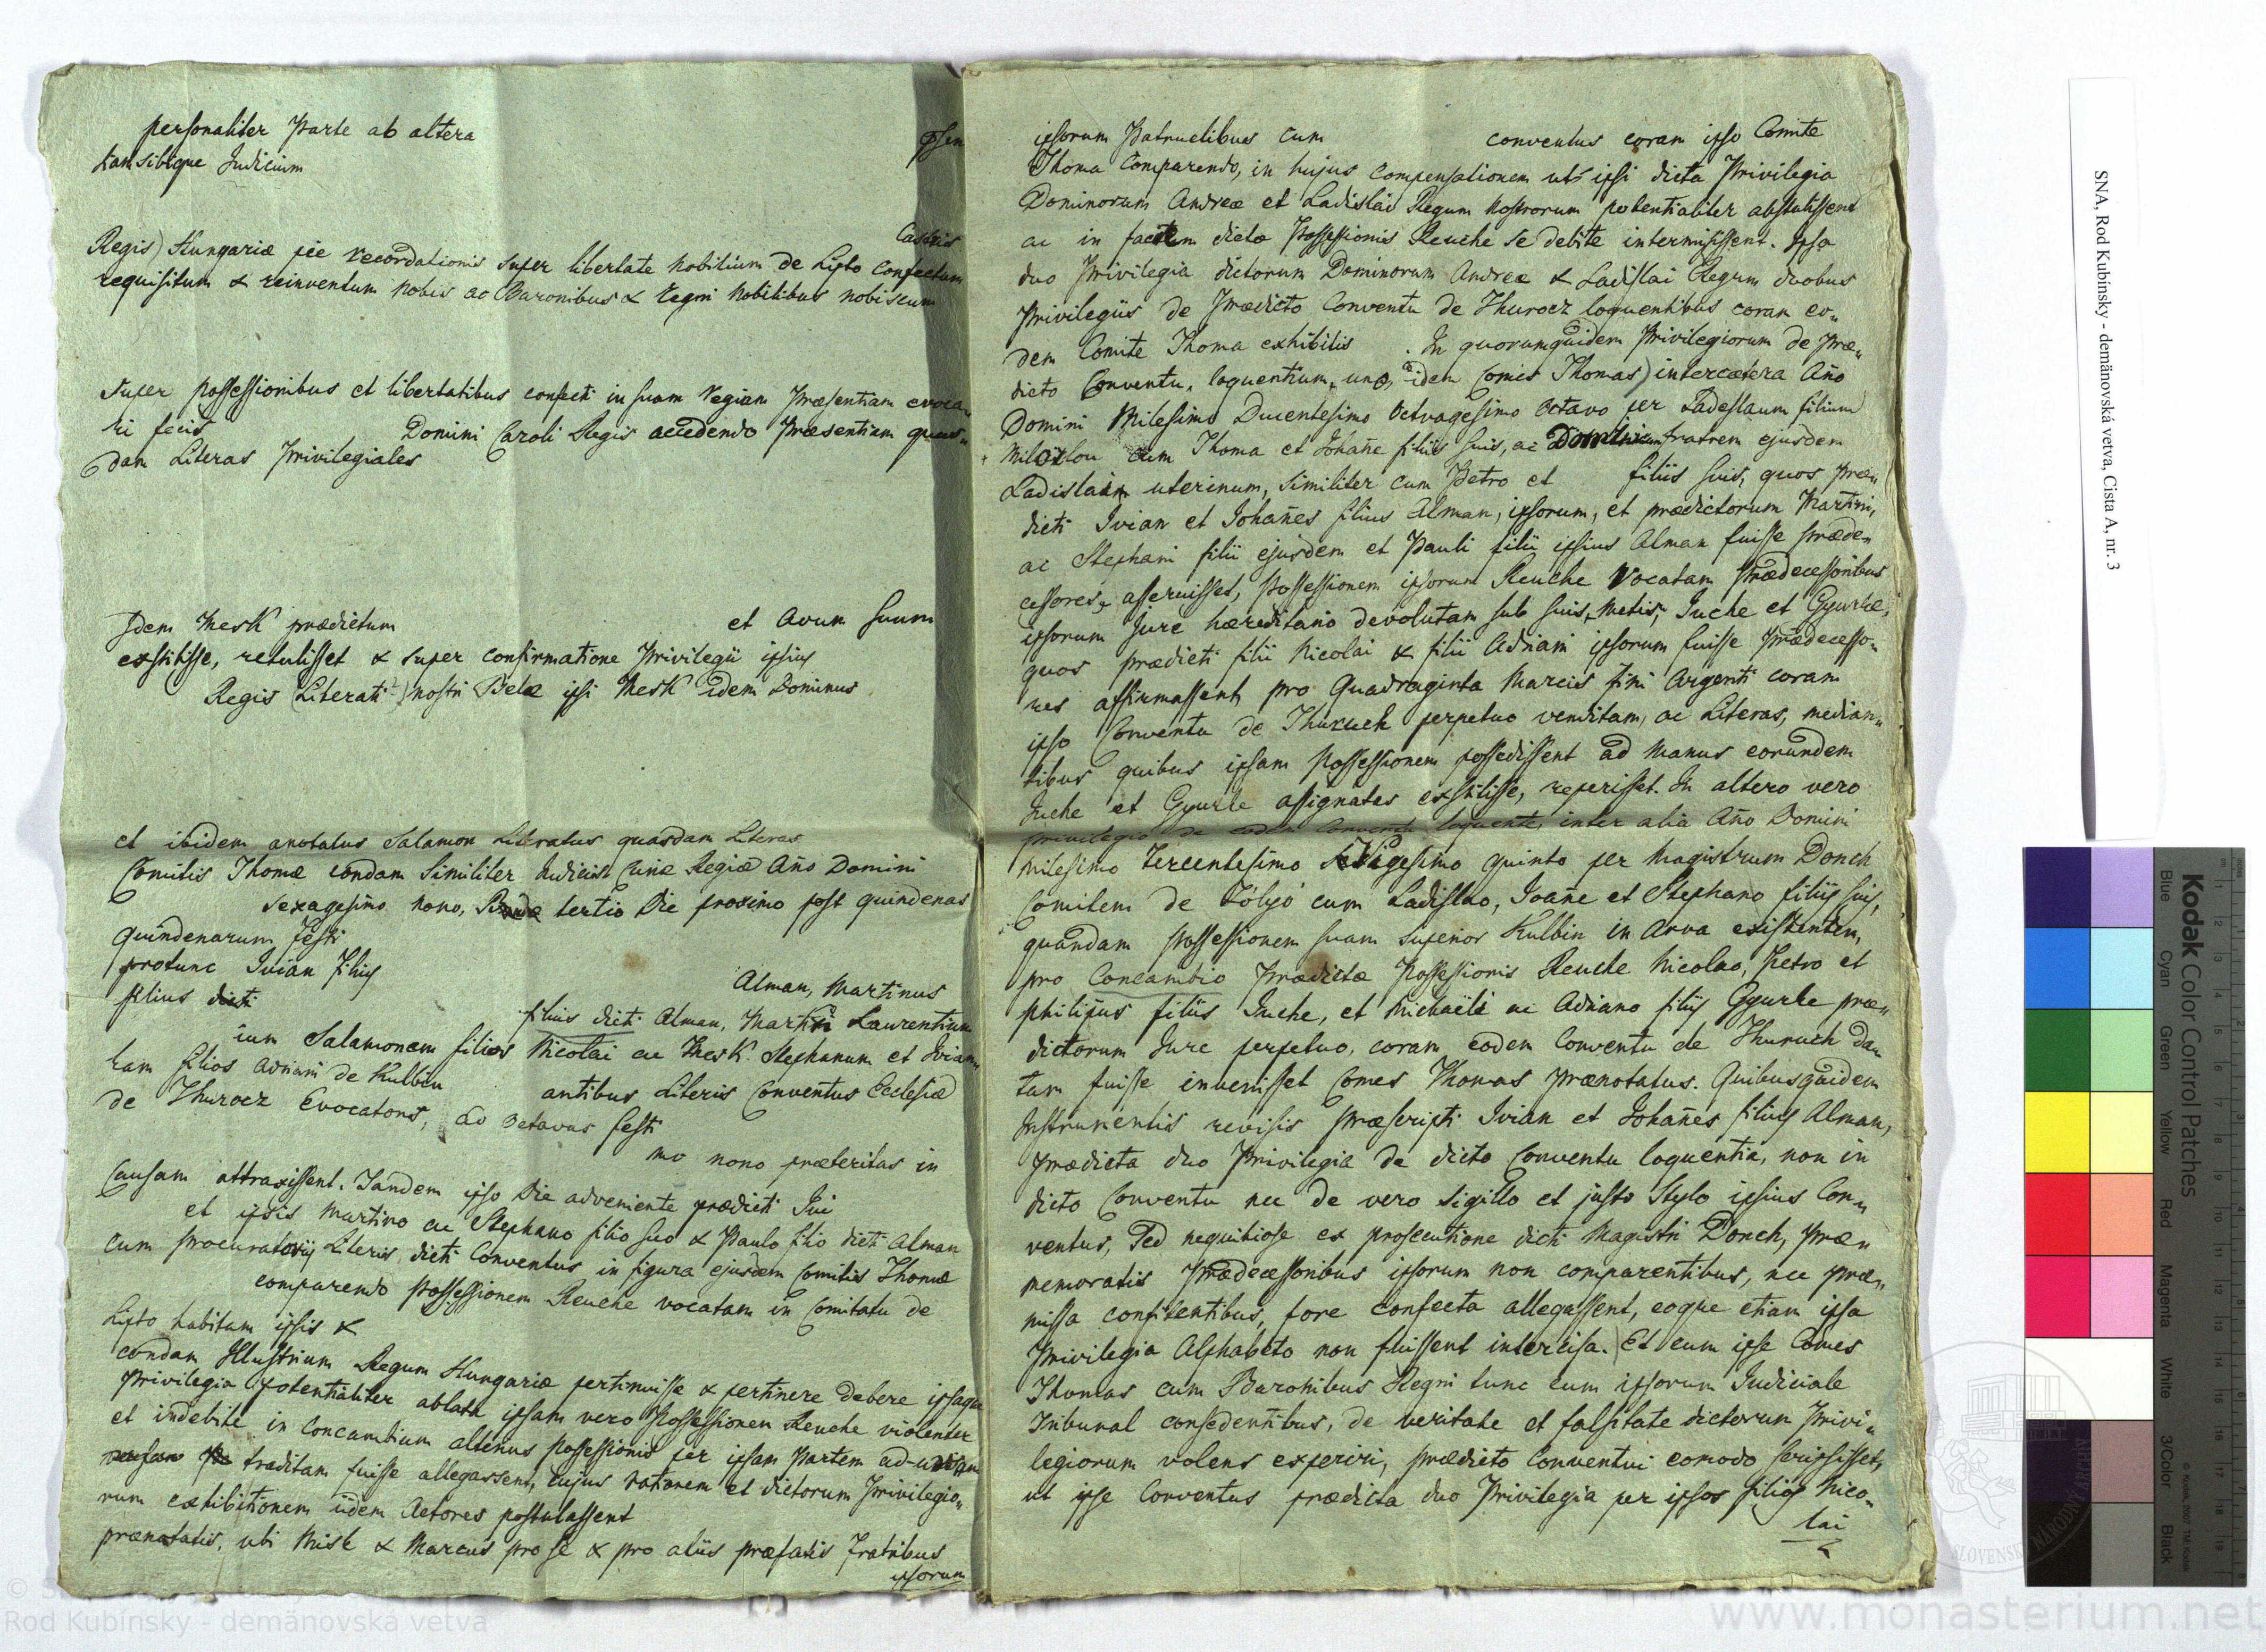 personaliter Parte ab altera
tam sibique Judicium
Castris
Regis) Hungariæ piæ recordationis super libertate Nobilium de Lipto confectum
requisitum & reinventum nobis ac Baronibus & Regni Nobilibus nobiscum
super possessionibus et libertatibus confecti in suam Regiam Præsentiam evoca„
ri fecit Domini Caroli Regis accedendo Præsentiam quas„
dam Literas Privilegiales
Idem Mesk prædictum et Avum suum
exstitisse, retulisset & super confirmatione Privilegii ipsius
Regis (Literati) nostri Belæ ipsi Mesk idem Dominus
et ibidem anotatus Salamon Literatus quasdam Literas
Comitis Thomæ condam Similiter Judicis Curiæ Regiæ Año Domini
sexagesimo nono, tertio Die proximo post quindenas
Quindenarum Festi
protunc Ivian Filius
filius dicti Alman, Martinus
filius dicti Alman, Martini Laurentium
ium Salamonem filios Nicolai ac Mesk. Stephanum et Ivian
tam filios Adriani de Kulbin antibus Literis Conventus Ecclesiæ
de Thurocz Evocatoriis, ad octavas festi
mo nono præteritas in
Causam attraxissent. Tandem ipso Die adveniente prædicti Ivi
et ipsis Martino ac Stephano filio suo & Paulo filio dicti Alman
cum Procuratoriis Literis dicti Conventus in figura ejusdem Comitis Thomæ
comparendo Possessionem Reuche vocatam in Comitatu de
Lipto habitam ipsis &
condam Illustrium Regum Hungariæ pertinuisse & pertinere debere ipsaque
Privilegia potentialiter ablata ipsam vero Possessionem Reuche violenter
et indebite in Concambium alterius Possessionis per ipsam Partem ad-versam
traditam fuisse allegassent, cujus rationem et dictorum Privilegio„
rum exhibitionem iidem Actores postulassent
prænotatis, ubi Misk & Marcus pro se & pro aliis præfatis Fratribus
ipsorum
ipsorum Patruelibus cum conventus coram ipso Comite
Thoma Comparendo, in hujus compensationem uti ipsi dicta Privilegia
Dominorum Andreæ et Ladislai Regum Nostrorum potentialiter abstulissent
ac in factum dictæ Possessionis Reuche se debite intermisissent. Ipsa
duo Privilegia dictorum Dominorum Andreæ & Ladislai Regum duobus
Privilegiis de Prædicto Conventu de Thurocz loquentibus coram eo„
dem Comite Thoma exhibitis. In quorumquidem Privilegiorum de Præ„
dicto Conventu, loquentium, uno, idem Comes Thomas) intercætera Año
Domini Milesimo Ducentesimo Octvagesimo Octavo per Ladeslaum filium
Milozlou cum Thoma et Johañe filiis suis, ac fratrem ejusdem
Ladislaim uterinum, similiter cum Petro et filiis suis, quos præ„
dicti Ivian et Johañes filius Alman, ipsorum, et prædictorum Martini,
ac Stephani filii ejusdem et Pauli filii ipsius Alman fuisse præde„
cessores, asseruisset, Possessionem ipsorum Reuche Vocatam Prædecessoribus
ipsorum Jure hæreditario devolutam sub suis Metis, Iuche et Gyurke,
quos prædicti filii Nicolai & filii Adriani ipsorum fuisse Prædecesso„
res affirmassent, pro Quadraginta Marcis fini Argenti coram
ipso Conventu de Thuruch perpetuo venditam, ac Literas, median„
tibus quibus ipsam Possessionem possedissent ad Manus eorundem
Iuche et Gyurke assignatas exstitisse, reperisset. In altero vero
privilegio de eodem Conventu loquente, inter alia Año Domini
Milesimo Tercentesimo Vigesimo quinto per Magistrum Donch
Comitem de Zólyó cum Ladislao, Joañe et Stephano filiis suis,
quandam Possessionem suam Superior Kulbin in Arva existentem,
pro Concambio Prædictæ Possessionis Reuche Nicolao, Petro et
Philipus filiis Iuche, et Michaële ac Adriano filiis Gyurke præ„
dictorum Jure perpetuo, coram eodem Conventu de Thuruch da„
tam fuisse invenisset Comes Thomas prænotatus. Quibusquidem
Instrumentis revisis Præscripti Ivian et Johañes filius Alman,
prædicta duo Privilegia de dicto Conventu loquentia, non in
dicto Conventu nec de vero sigillo et justo Stylo ipsius Con„
ventus, sed nequitiose ex prosecutione dicti Magistri Donch, Præ„
memoratis Prædecessoribus ipsorum non comparentibus, nec præ„
missa confitentibus, fore confecta allegassent, eoque etiam ipsa
Privilegia Alphabeto non fuissent intercisa. Et cum ipse Comes
Thomas cum Baronibus Regni tunc cum ipsorum Judiciale
Tribunal consedentibus, de veritate et falsitate dictorum Privi„
legiorum volens experiri, prædicto Conventui eomodo scripsisset,
ut ipse Conventus prædicta duo Privilegia per ipsos filios Nico„
lai
SNA, Rod Kubínsky - demänovská vetva, Cista A, nr. 3
Kodak Color Control Patches
Blue Cyan Green Yellow Red Magenta White 3/Color Black
Rod Kubínsky - demänovská vetva
www.monasterium.net